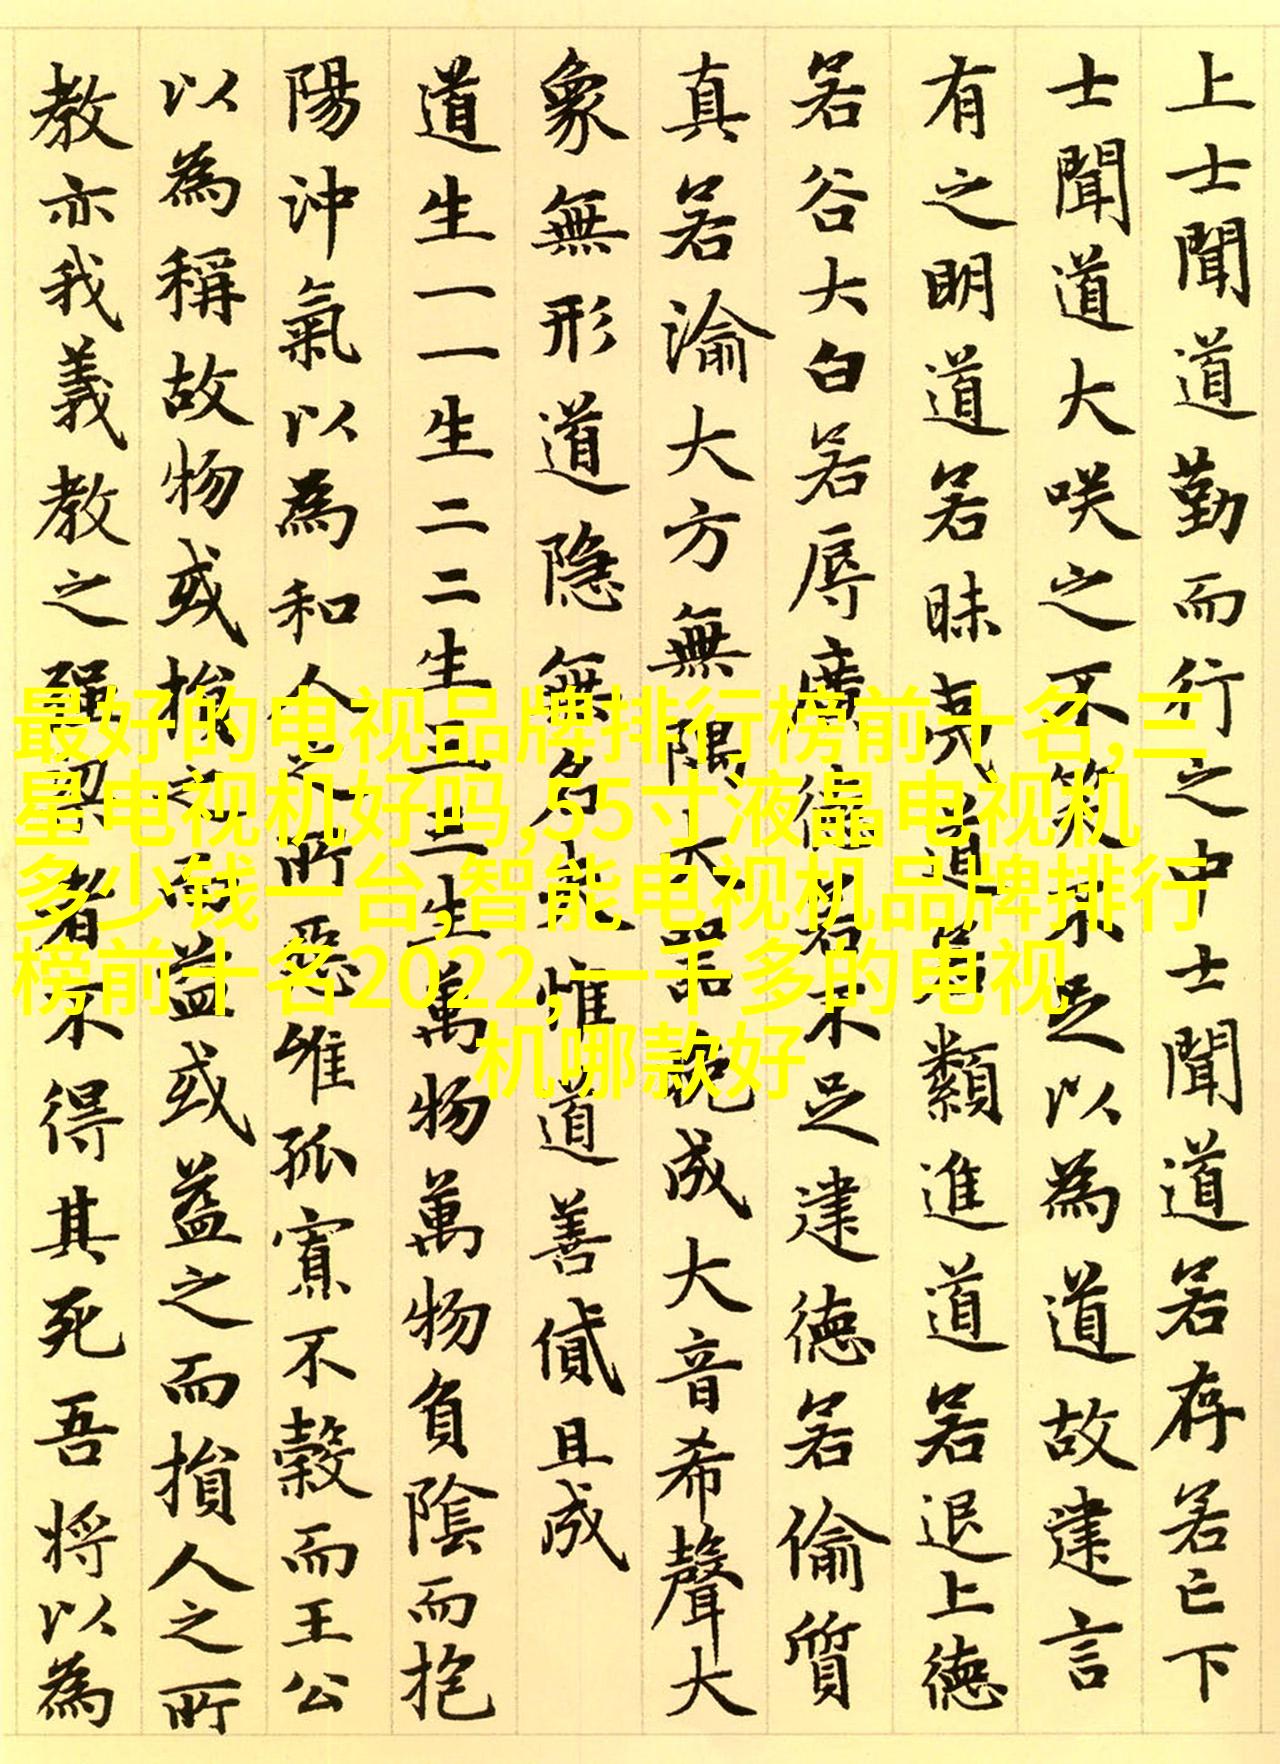 上士聞道勤而行之中士聞道若存若亡下
士聞道大咲之不笑不足以為道故建言
有之明道若昧夷道若類進道若退上德
若谷大白若辱廣德若不足建德若偷質
真若渝大方無隅大器晚成大音希聲大
象無形道隱無名夫惟道善貸且成
道生一一生二二生三三生萬物萬物負陰而抱
陽沖氣以為和人之所惡惟孤寡不穀而王公
以為稱故物或損之而益或益之而損人之所
教亦我義教之強梁者不得其死吾將以為
最好的电视品牌排行榜前十名,三
星电视机好吗,55寸液晶电视机
多少钱一台,智能电视机品牌排行
榜前十名2022,一千多的电视
机哪款好